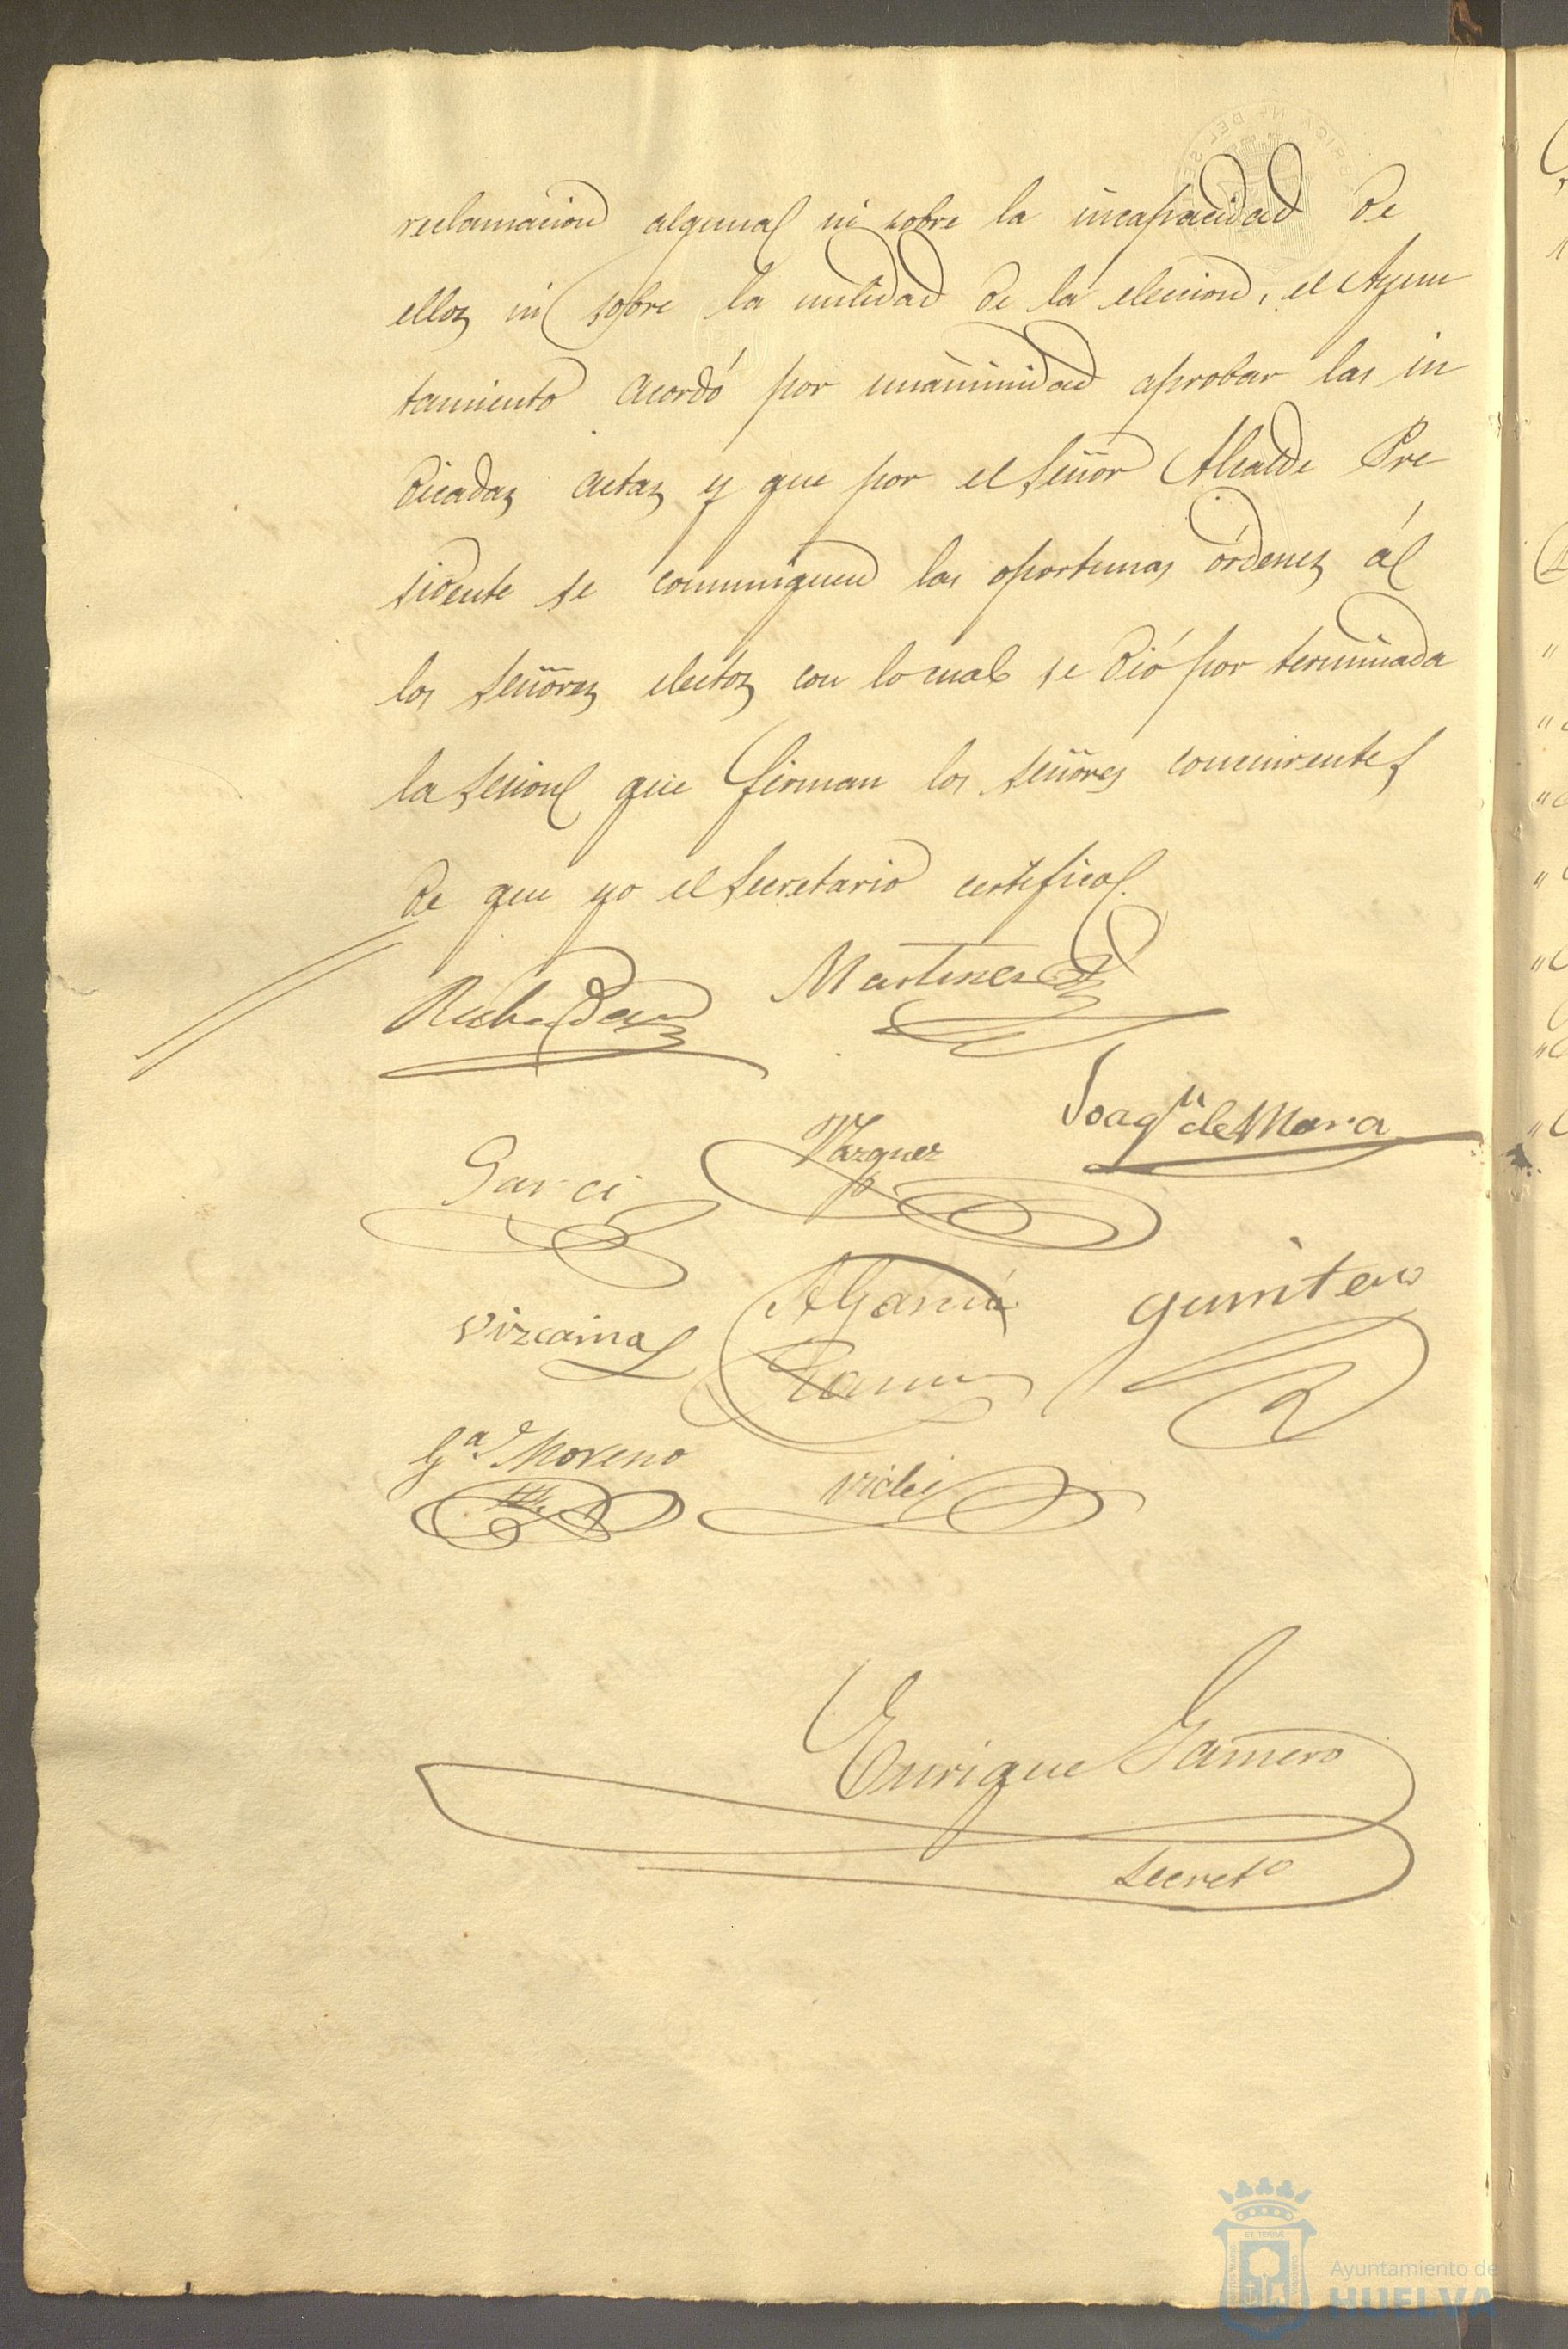 reclamacion alguna ni sobre la incapacidad de
ellos ni sobre la nulidad de la eleccion, el Ayun
tamiento acordó por unánimidad aprobar las in
dicadas actas y que por el Señor Alcalde Pre-
sidente se comuniquen las oportunas órdenes á
los Señores electos con lo cual se dió por terminada
la sesion que firman los Señores concurrentes
de que yo el Secretario certifico.
Martinez
Joaqn de Mora
Garci Vazquez
Vizcaina A Garcia Quintero
Ramos
Ga Moreno Videl
Enrique Gamero
Secreto
Ayuntamiento de
HUELVA